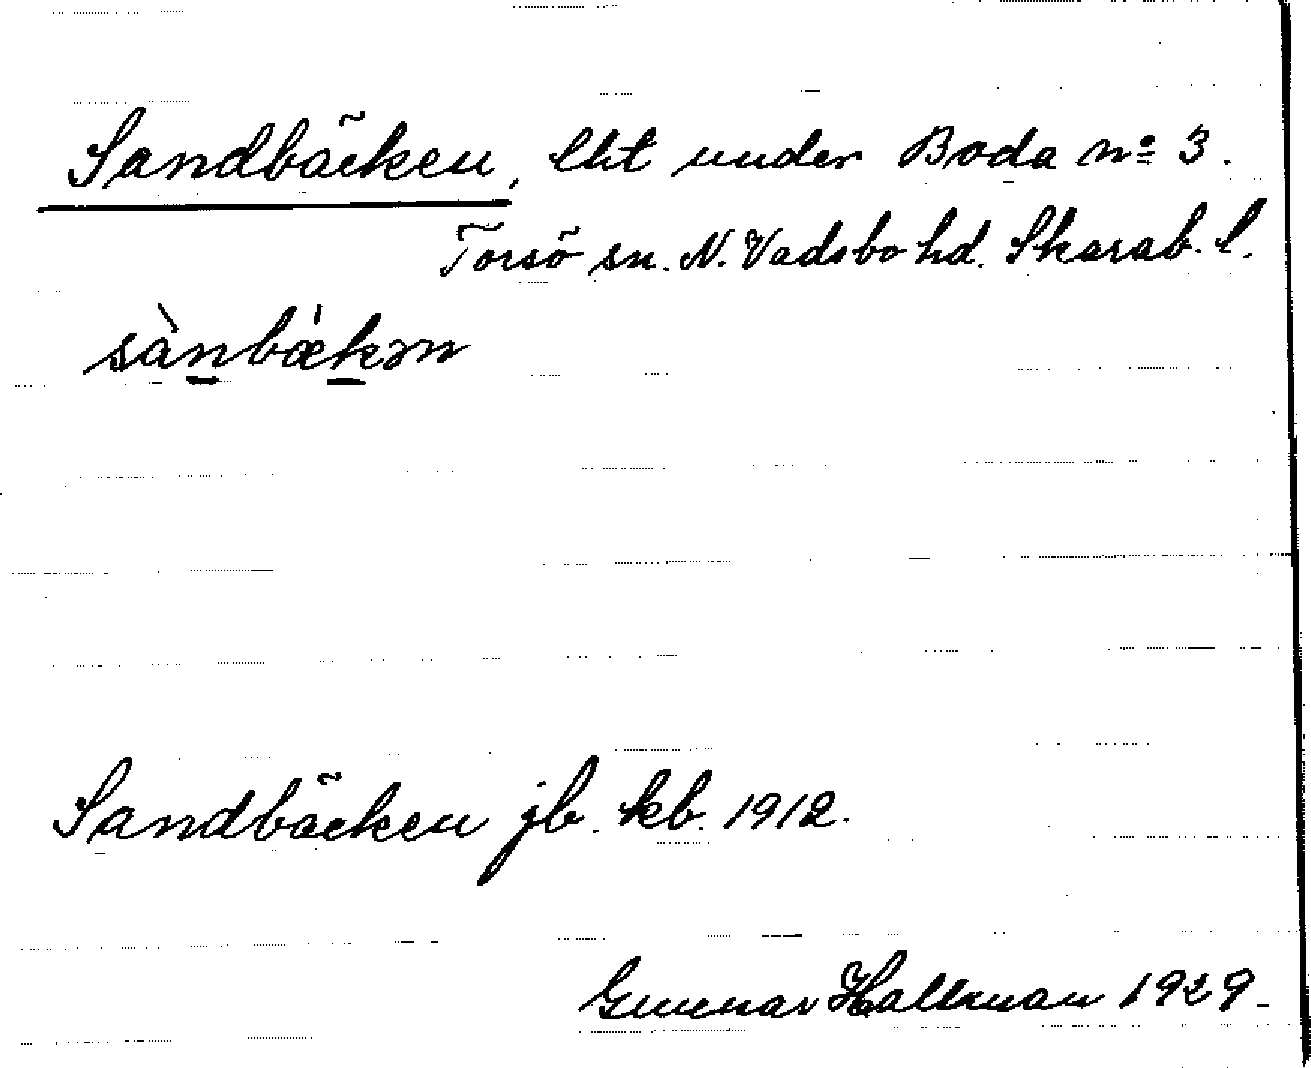 Sandbäcken, lht under Boda nº 3.
Torsö sn. N. Vadsbo hd. Skarab. l.
sànbǽkən
Sandbäcken jb. kb. 1912.
Gunnar Hallman 1929.